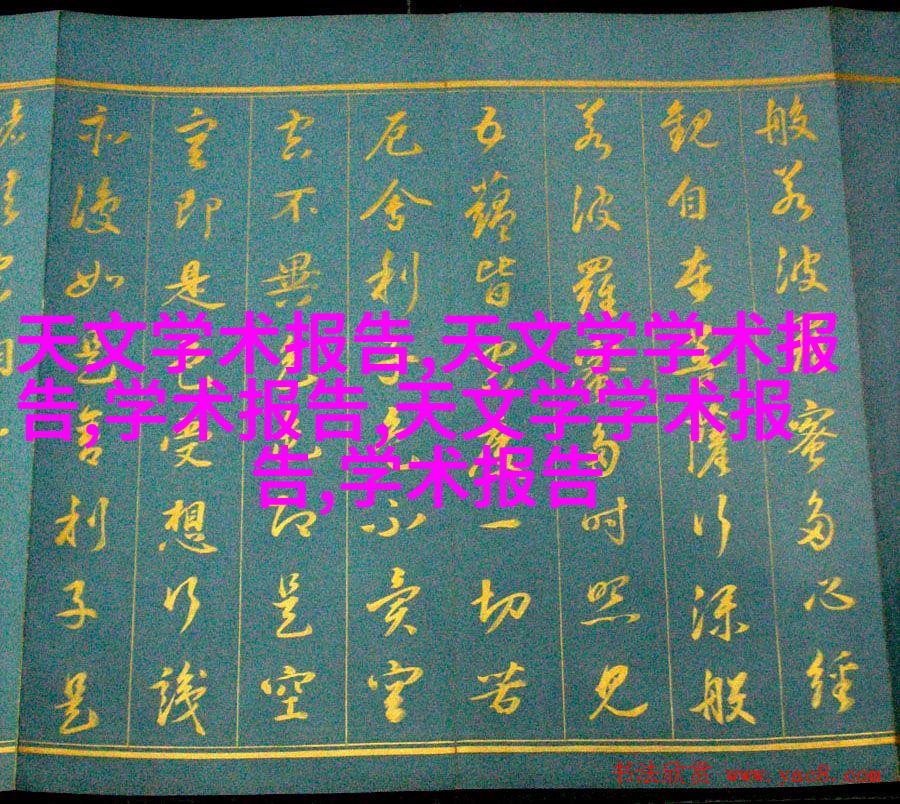 般若波蜜多心經
觀自在菩薩行深般
若波羅蜜多時照見
五蘊皆空度一切苦
厄舍利子色不異空
空不異色色即是空
空即是色受想行識
亦復如是舍利子是
天文学术报告,天文学学术报
告,学术报告,天文学学术报
告,学术报告
书法欣赏 www.yac8.com